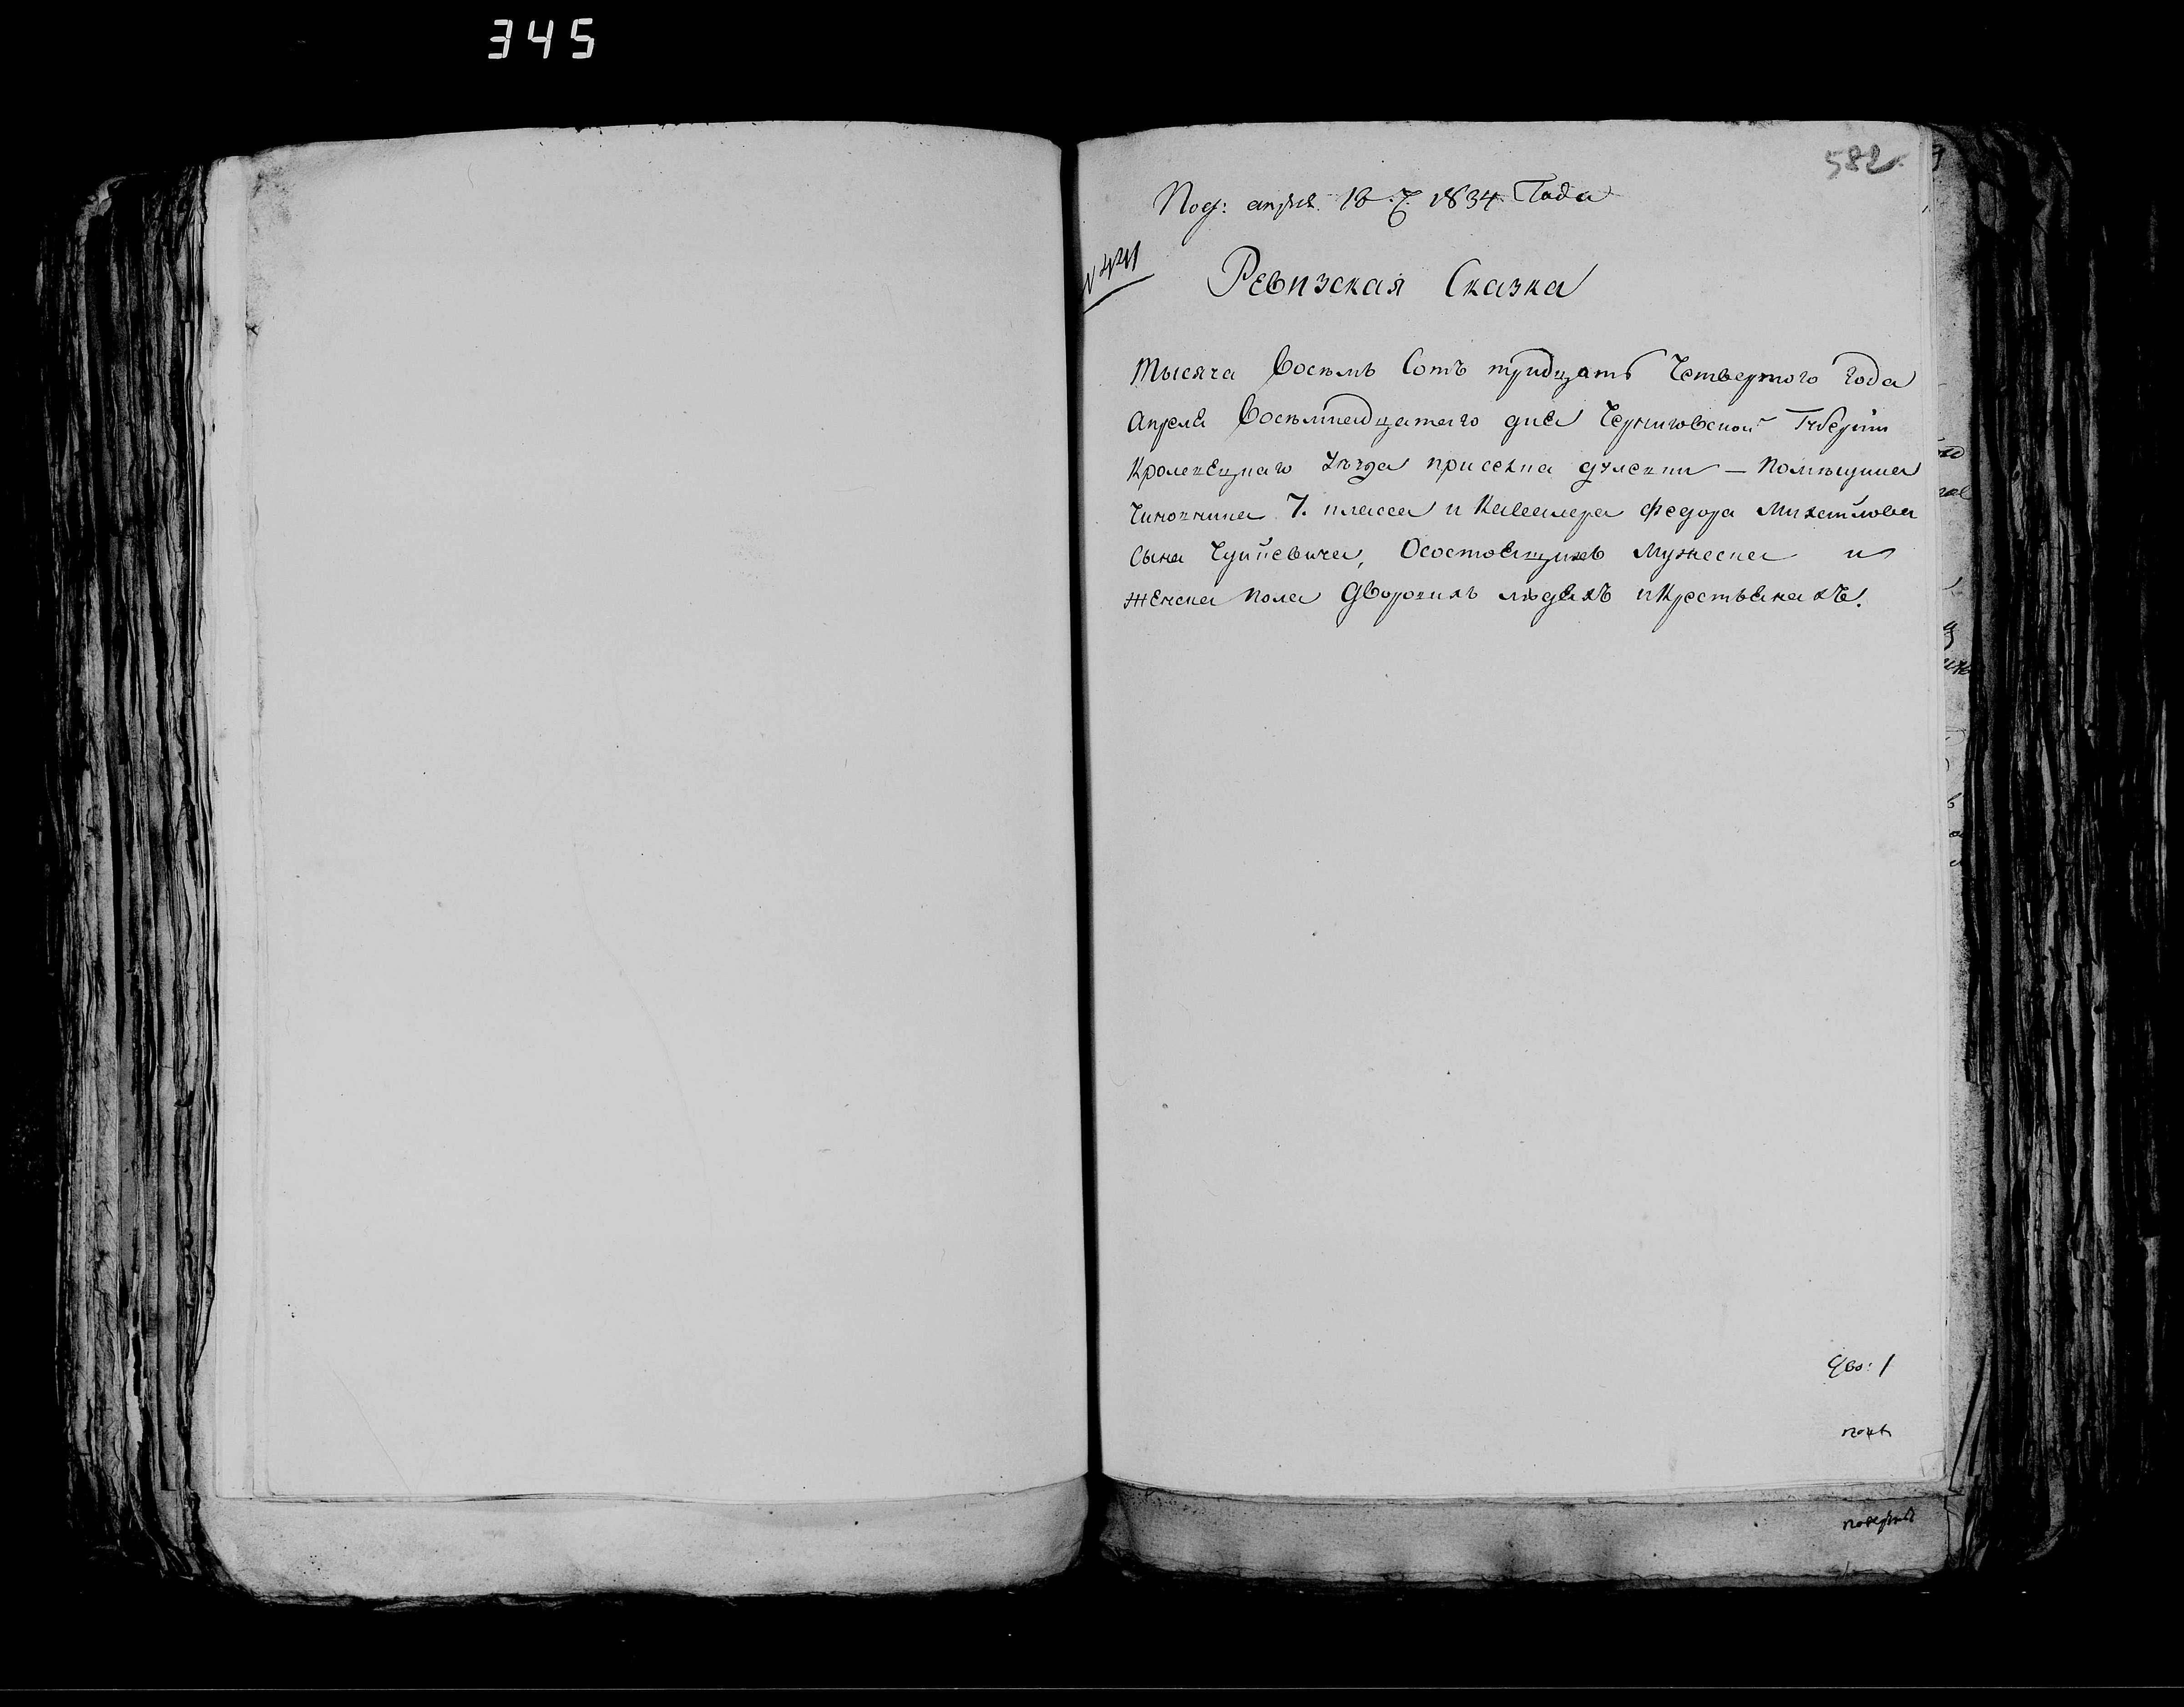 345
582
Под: апреля 18 Д. 1834 Года
Ревизская Сказка
Тысяча Восемь Сотъ тридцать Четвертого Года
Апреля Восьмнадцатаго дня Черниговской Губернiи
Кролевецкаго уѣзда при селѣ помѣщика
Чиновника 7. класса и Кавалера Федора Михайлова
Сына Чуйкевича, Осостоящихъ Мужеска и
Женска пола Дворовыхъ людяхъ и Крестьянахъ.